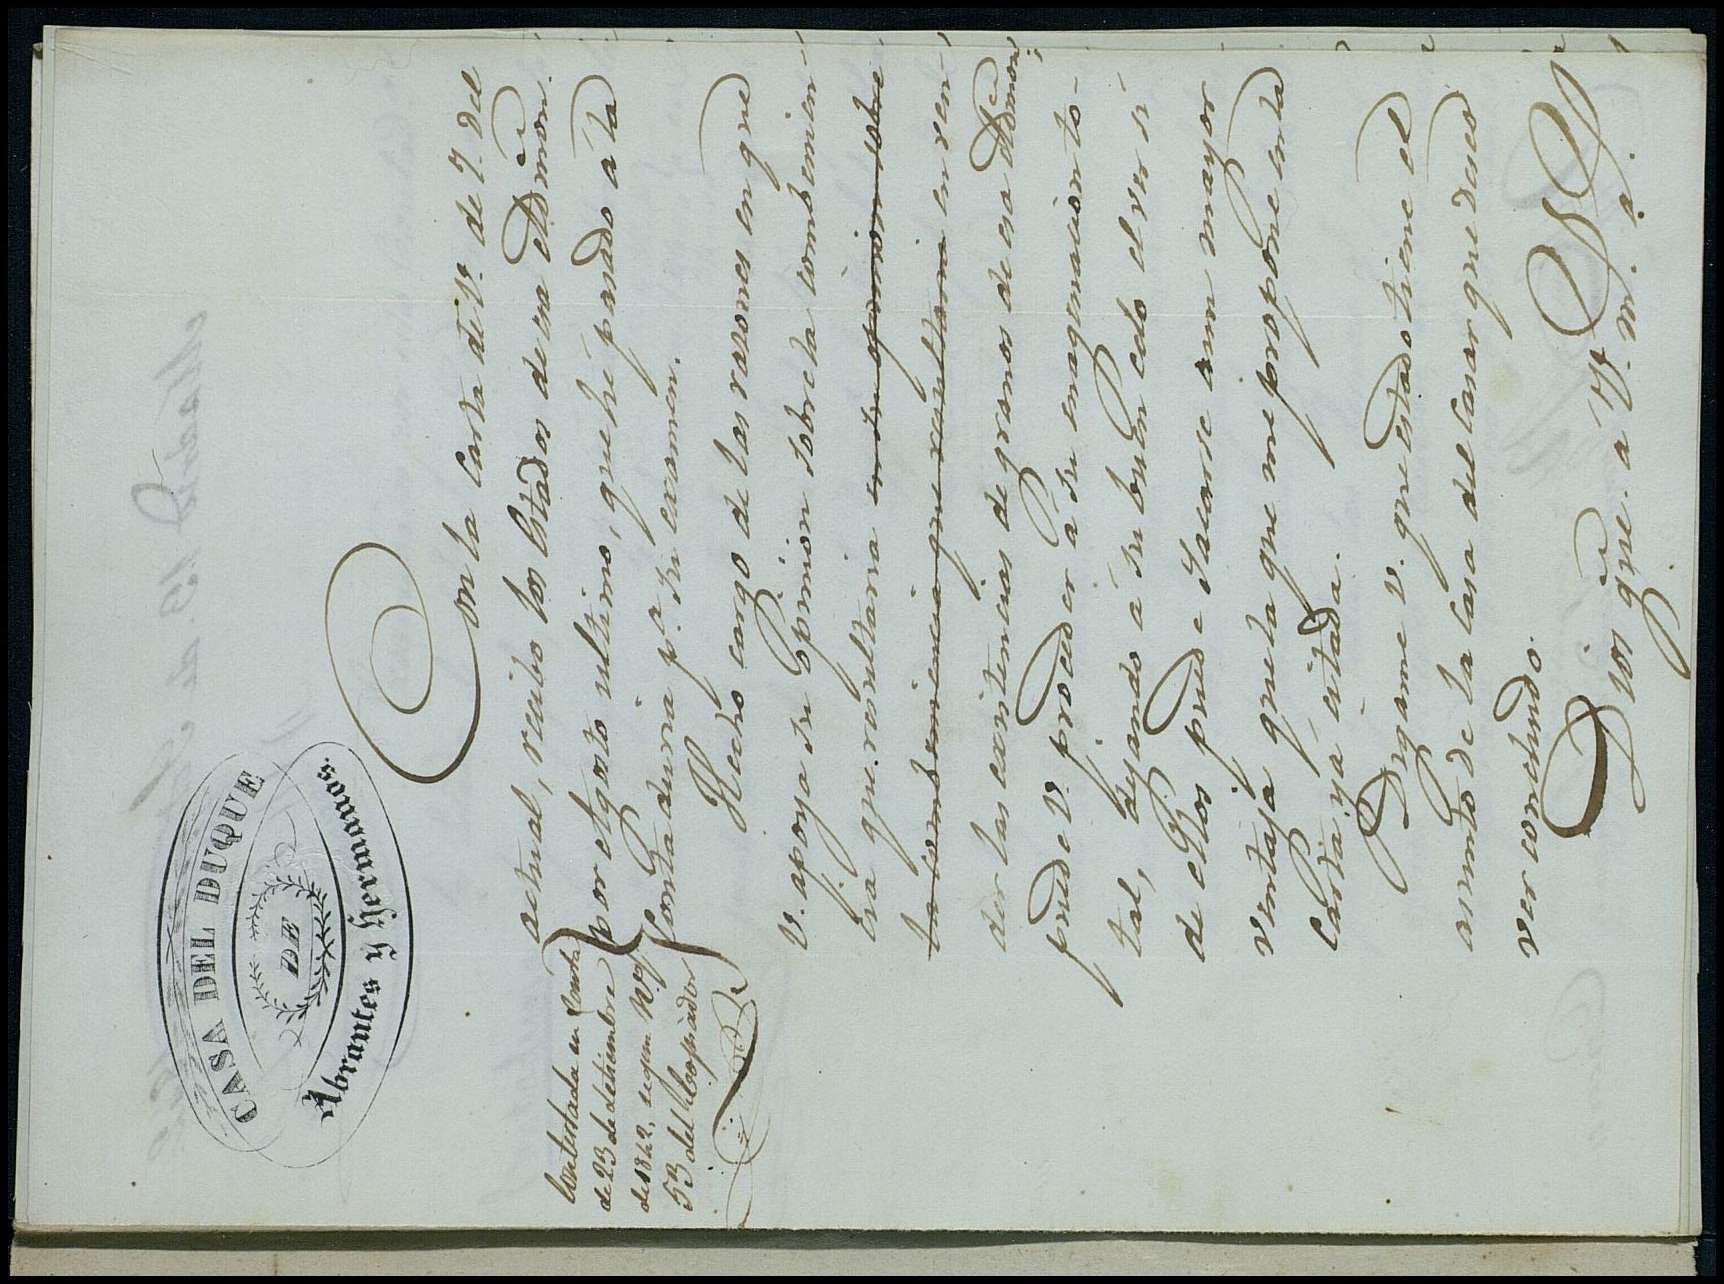 CASA DEL DUQUE
DE
Abrantes y Hermanos.
Con la Carta de V. de 7. del
actual, recibo los Estados de esa Admon.
por el gasto ultimo, que hé pasado a la
Contaduria pª. su examen.
Contestada en Carta
de 23 de Setiembre
de 1842, segun Nº
53 del Copiador
Hecho cargo de las razones en que
V. apoya su opinión sobre la combenien-
cia que resultaria en su opinion sobre
la combeniencia que resultaria en ven-
der las existencias de granos de esa Admon.
puede V. proceder á su enagenacion to-
tal, dejando á su buen celo el ver si
de ellos puede sacarse aun mayor
ventaja que la que me propone en la
Carta yá citada.
Digame V. que estado tiene el
asunto de la casa del lagar que deseo
ver concluido.
Dios gue. a V. m. a.